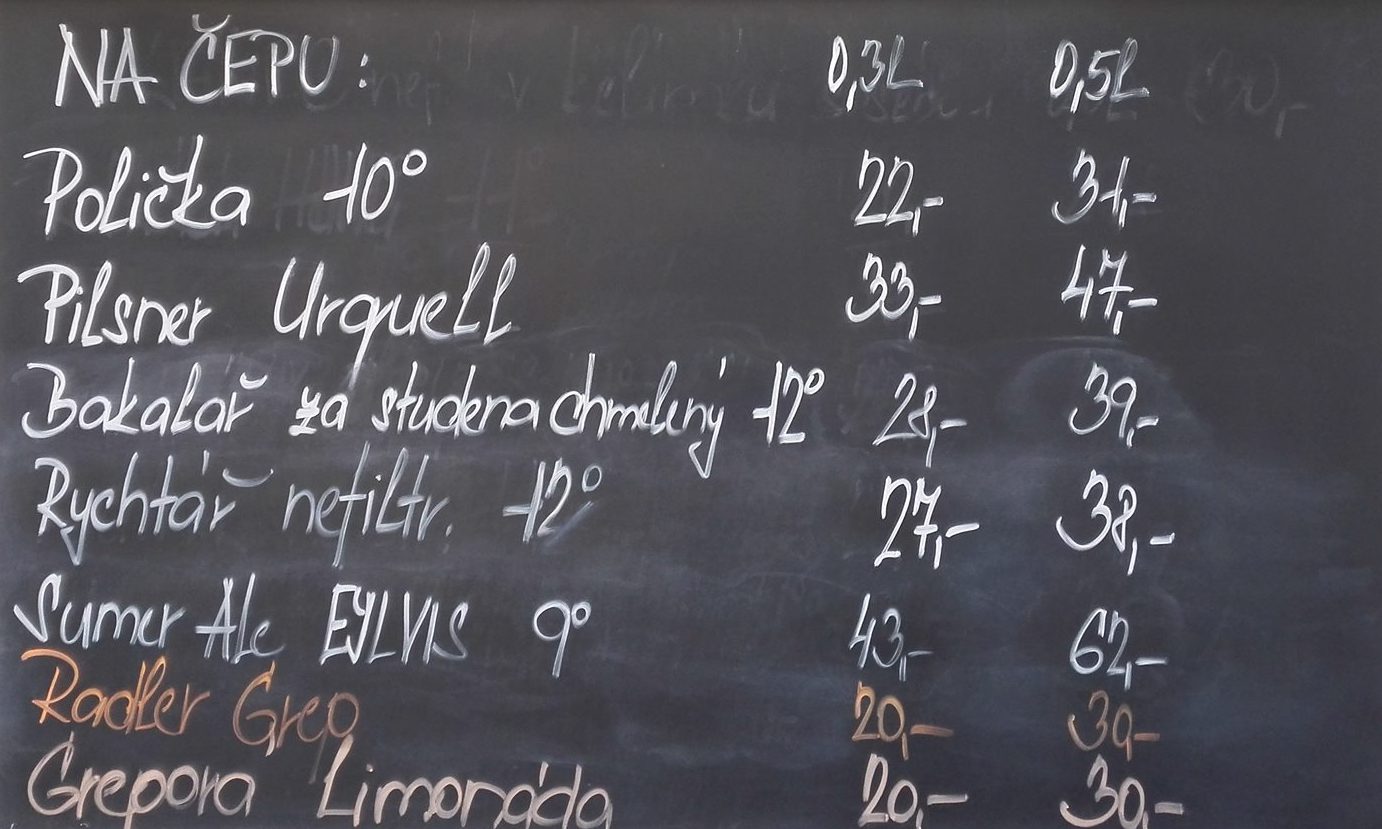 NA ČEPU: 0,3L 0,5L
Polička 10° 22,- 31,-
Pilsner Urquell 33,- 47,-
Bakalář za studena chmelený 12° 28,- 39,-
Rychtář nefiltr. 12° 27,- 38,-
Sumer Ale EJLVIS 9° 43,- 62,-
Radler Grep 20,- 30,-
Grepová Limonáda 20,- 30,-